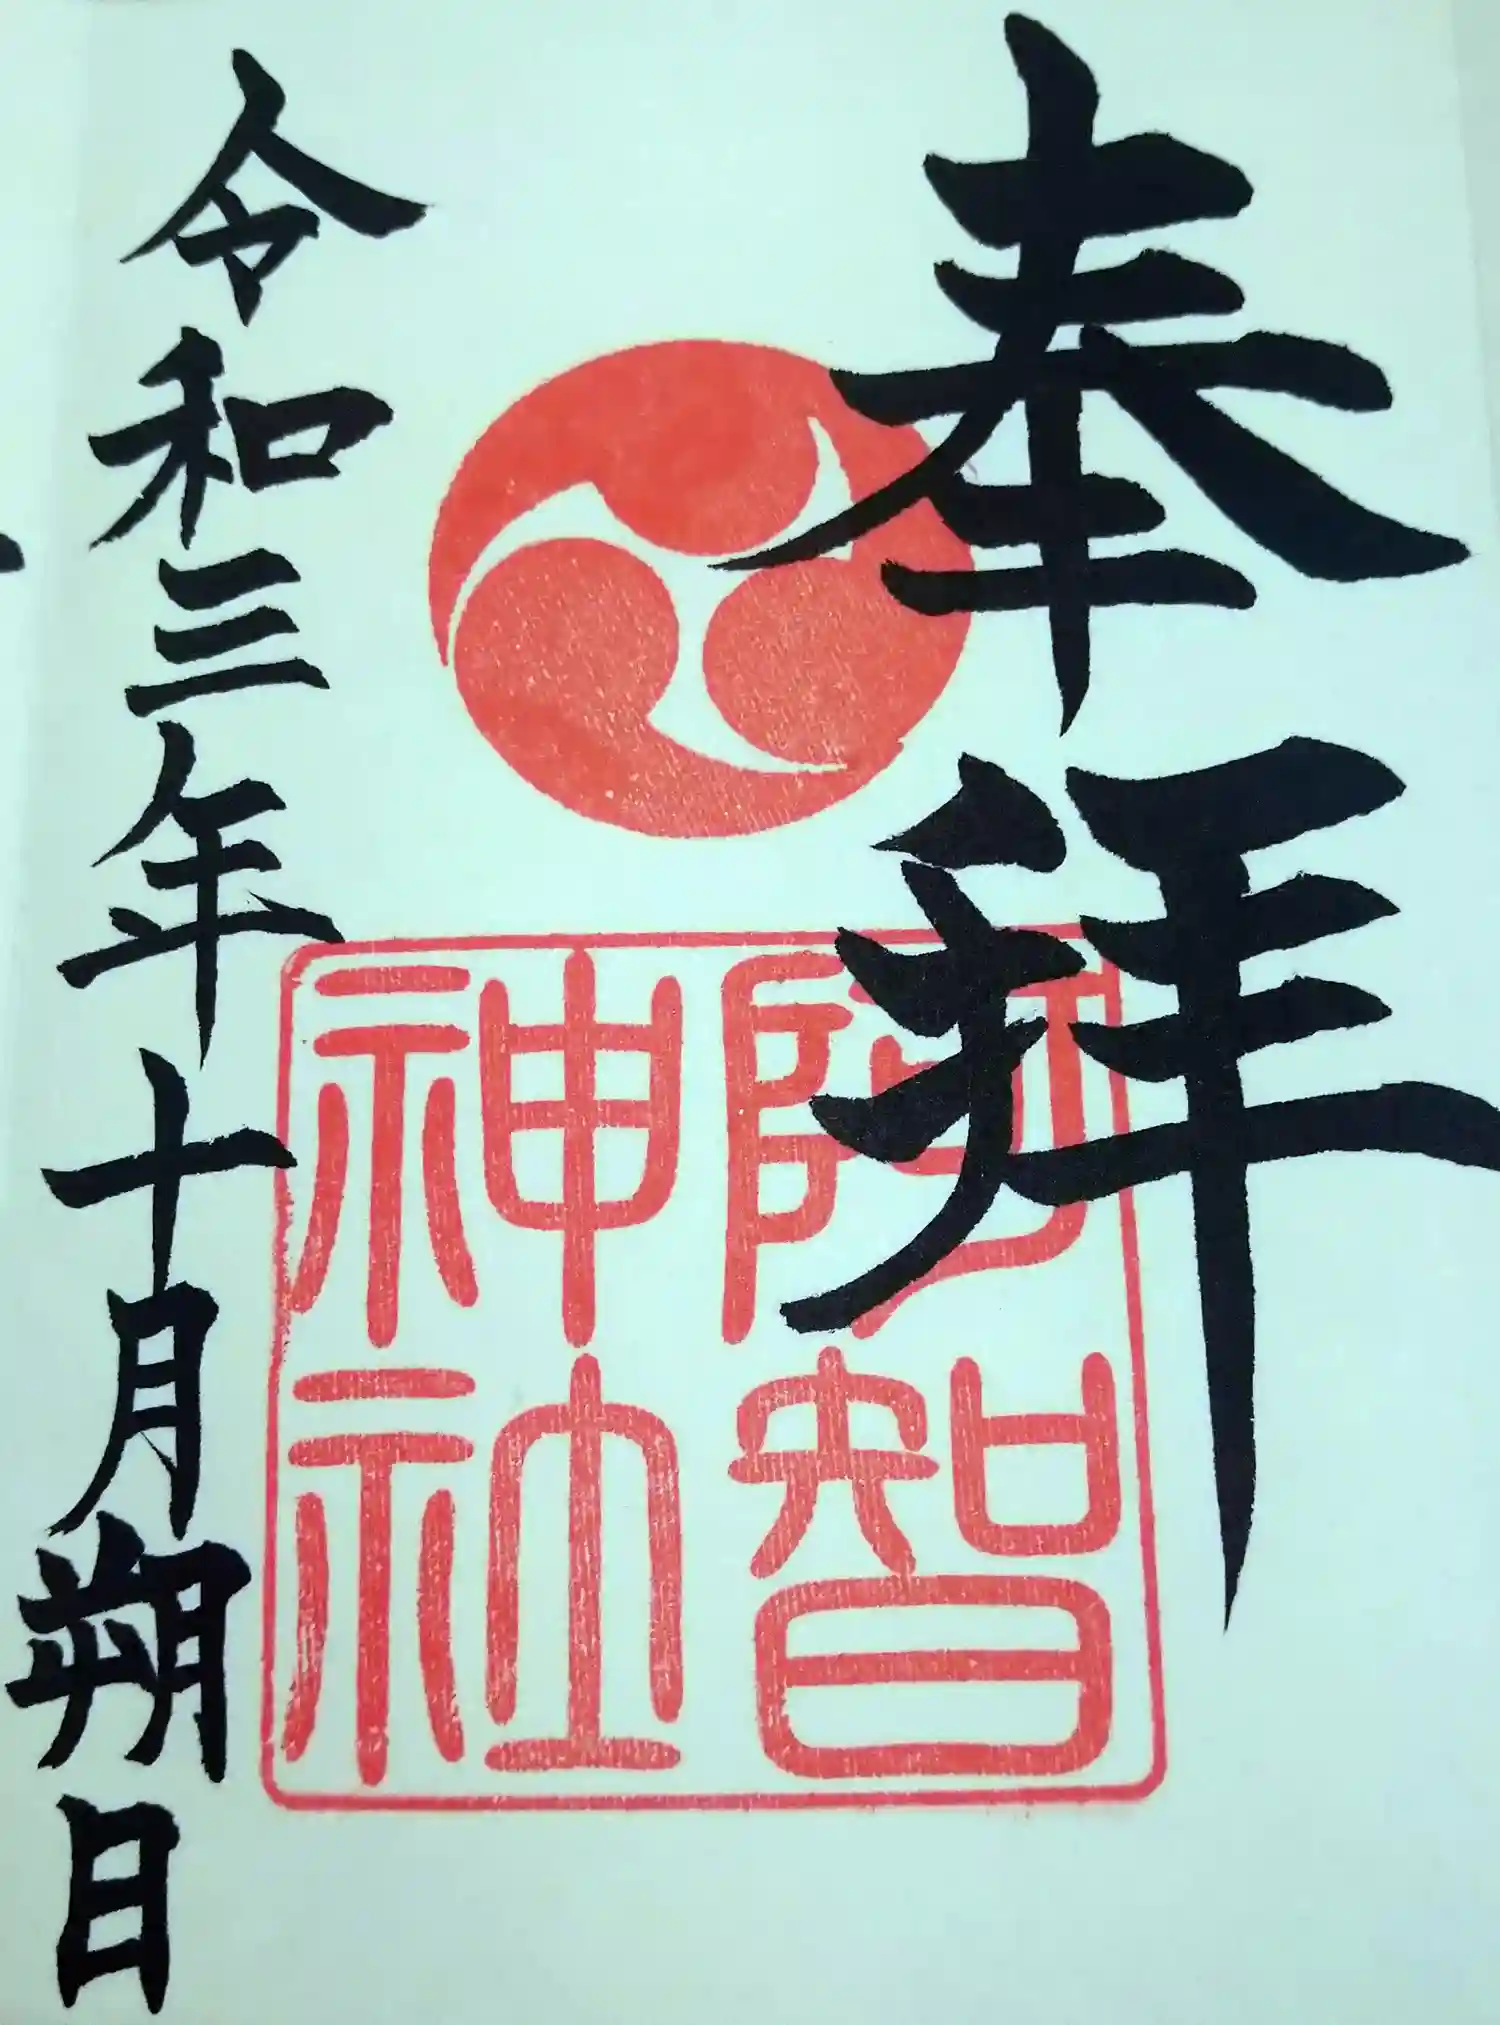 奉拝
阿智
神社
令和三年十月朔日